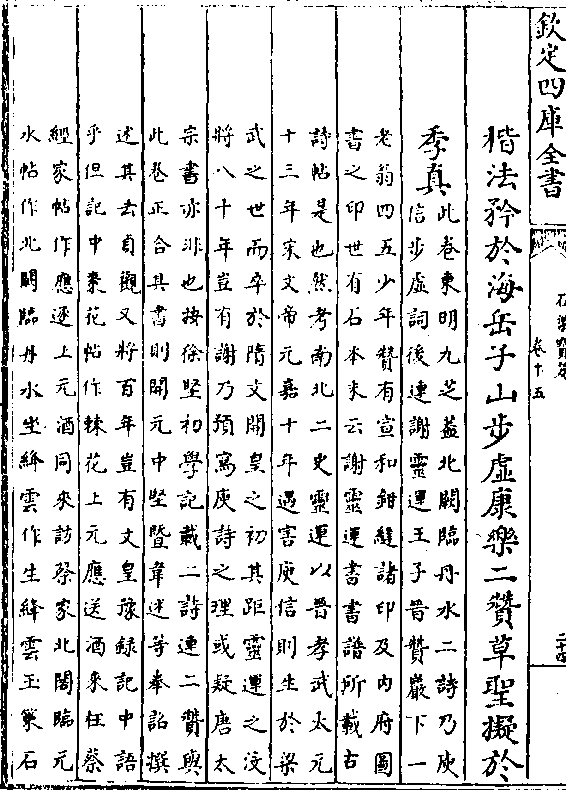 欽定四庫全書
石渠寶笈
卷十五
二十四
楷法矜於海岳子山步虛康樂二贊草聖擬於
季真
此卷東明九芝蓋北闕臨丹水二詩乃庾
信步虛詞後連謝靈運王子晉贊巖下一
老翁四五少年贊有宣和鉗縫諸印及內府圖
書之印世有石本末云謝靈運書書譜所載古
詩帖是也然考南北二史靈運以晉孝武太元
十三年宋文帝元嘉十年遇害庾信則生於梁
武之世而卒於隋文開皇之初其距靈運之沒
將八十年豈有謝乃預寫庾詩之理或疑唐太
宗書亦非也按徐堅初學記載二詩連二贊與
此卷正合其書則開元中堅暨韋述等奉詔撰
述其去貞觀又將百年豈有文皇豫録記中語
乎但記中棗花帖作棘花上元應送酒來枉蔡
經家帖作應逐上元酒同來訪蔡家北閣臨元
水帖作北闕臨丹水坐絳雲作生絳雲玉策石